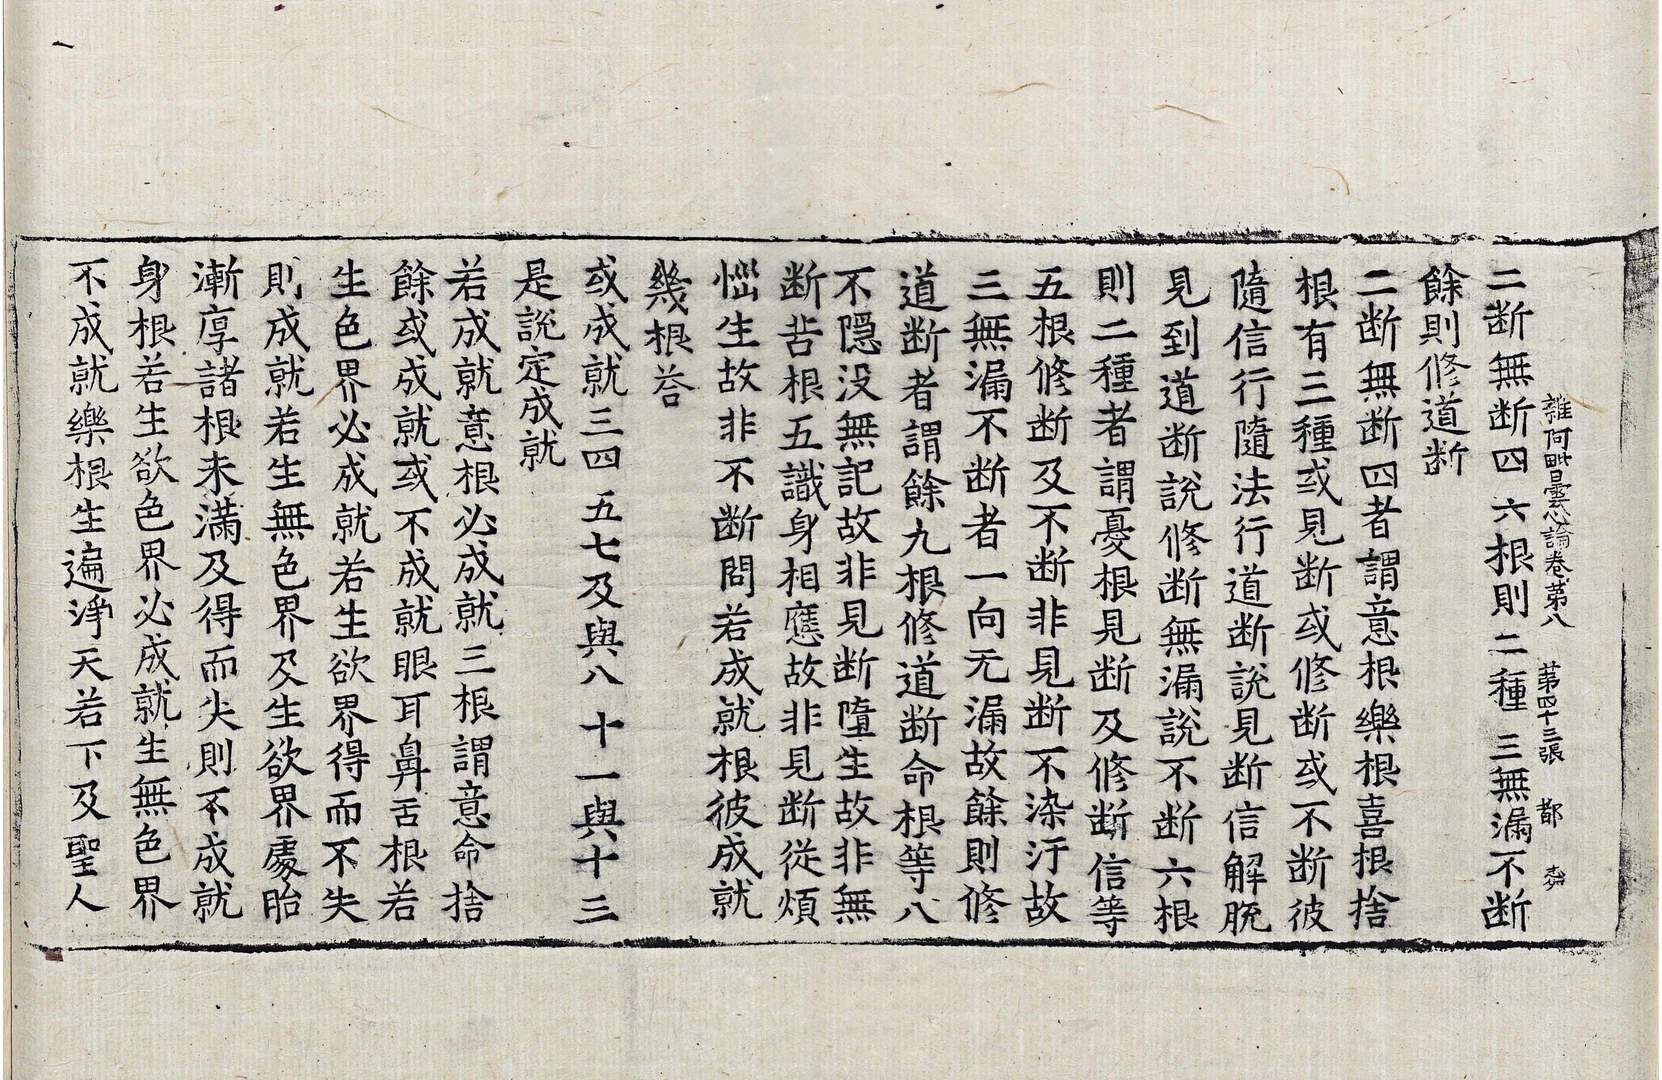 雜阿毗曇心論卷第八 第四十三張 都
二断無断四 六根則二種 三無漏不断
餘則修道断
二断無断四者謂意根樂根喜根捨
根有三種或見断或修断或不断彼
隨信行隨法行道断說見断信解脫
見到道断說修断無漏說不断六根
則二種者謂憂根見断及修断信等
五根修断及不断非見断不染汙故
三無漏不断者一向无漏故餘則修
道断者謂餘九根修道断命根等八
不隱没無記故非見断墮生故非無
断苦根五識身相應故非見断從煩
惱生故非不断問若成就根彼成就
幾根荅
或成就三四 五七及與八 十一與十三
是說定成就
若成就意根必成就三根謂意命捨
餘或成就或不成就眼耳鼻舌根若
生色界必成就若生欲界得而不失
則成就若生無色界及生欲界處胎
漸厚諸根未滿及得而失則不成就
身根若生欲色界必成就生無色界
不成就樂根生遍淨天若下及聖人